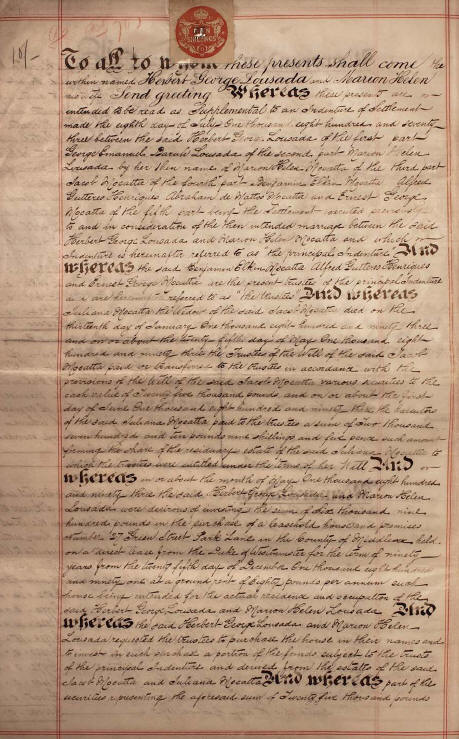 10/-
TEN
SHILLINGS
To all to whom these presents shall come the
within named Herbert George Lousada and Marion Helen
Lousada Send greeting Whereas these presents are
intended to be read as Supplemental to an Indenture of Settlement
made the eighth day of July One thousand eight hundred and seventy
three between the said Herbert George Lousada of the first part
George Emanuel Baruh Lousada of the second part Marion Helen
Lousada by her then name of Marion Helen Mocatta of the third part
Jacob Mocatta of the fourth part Benjamin Elkin Mocatta Alfred
Gutteres Henriques Abraham de Mattos Mocatta and Ernest George
Mocatta of the fifth part being the Settlement executed previously
to and in consideration of the then intended marriage between the said
Herbert George Lousada and Marion Helen Mocatta and which
Indenture is hereinafter referred to as "the principal Indenture" And
whereas the said Benjamin Elkin Mocatta Alfred Gutteres Henriques
and Ernest George Mocatta are the present trustees of the principal Indenture
and are hereinafter referred to as "the trustees" And whereas
Juliana Mocatta the Widow of the said Jacob Mocatta died on the
thirteenth day of January One thousand eight hundred and ninety three
and on or about the twenty fifth day of May One thousand eight
hundred and ninety three the Trustees of the Will of the said Jacob
Mocatta paid or transferred to the trustees in accordance with the
provisions of the Will of the said Jacob Mocatta various securities to the
cash value of Twenty five thousand pounds and on or about the first
day of June One thousand eight hundred and ninety three the Executors
of the said Juliana Mocatta paid to the trustees a sum of Two thousand
seven hundred and ten pounds nine shillings and five pence such amount
forming the share of the residuary estate of the said Juliana Mocatta to
which the trustees were entitled under the terms of her Will And
whereas in or about the month of May One thousand eight hundred
and ninety three the said Herbert George Lousada and Marion Helen
Lousada were desirous of investing the sum of Six thousand nine
hundred pounds in the purchase of a leasehold house and premises
Number 27 Green Street Park Lane in the County of Middlesex held
on a direct lease from the Duke of Westminster for the term of ninety
years from the twenty fifth day of December One thousand eight hundred
and ninety one at a ground rent of Eighty pounds per annum such
house being intended for the actual residence and occupation of the
said Herbert George Lousada and Marion Helen Lousada And
whereas the said Herbert George Lousada and Marion Helen
Lousada requested the trustees to purchase the house in their names and
to invest in such purchase a portion of the funds subject to the trusts
of the principal Indenture and derived from the estates of the said
Jacob Mocatta and Juliana Mocatta And whereas part of the
securities representing the aforesaid sum of Twenty five thousand pounds